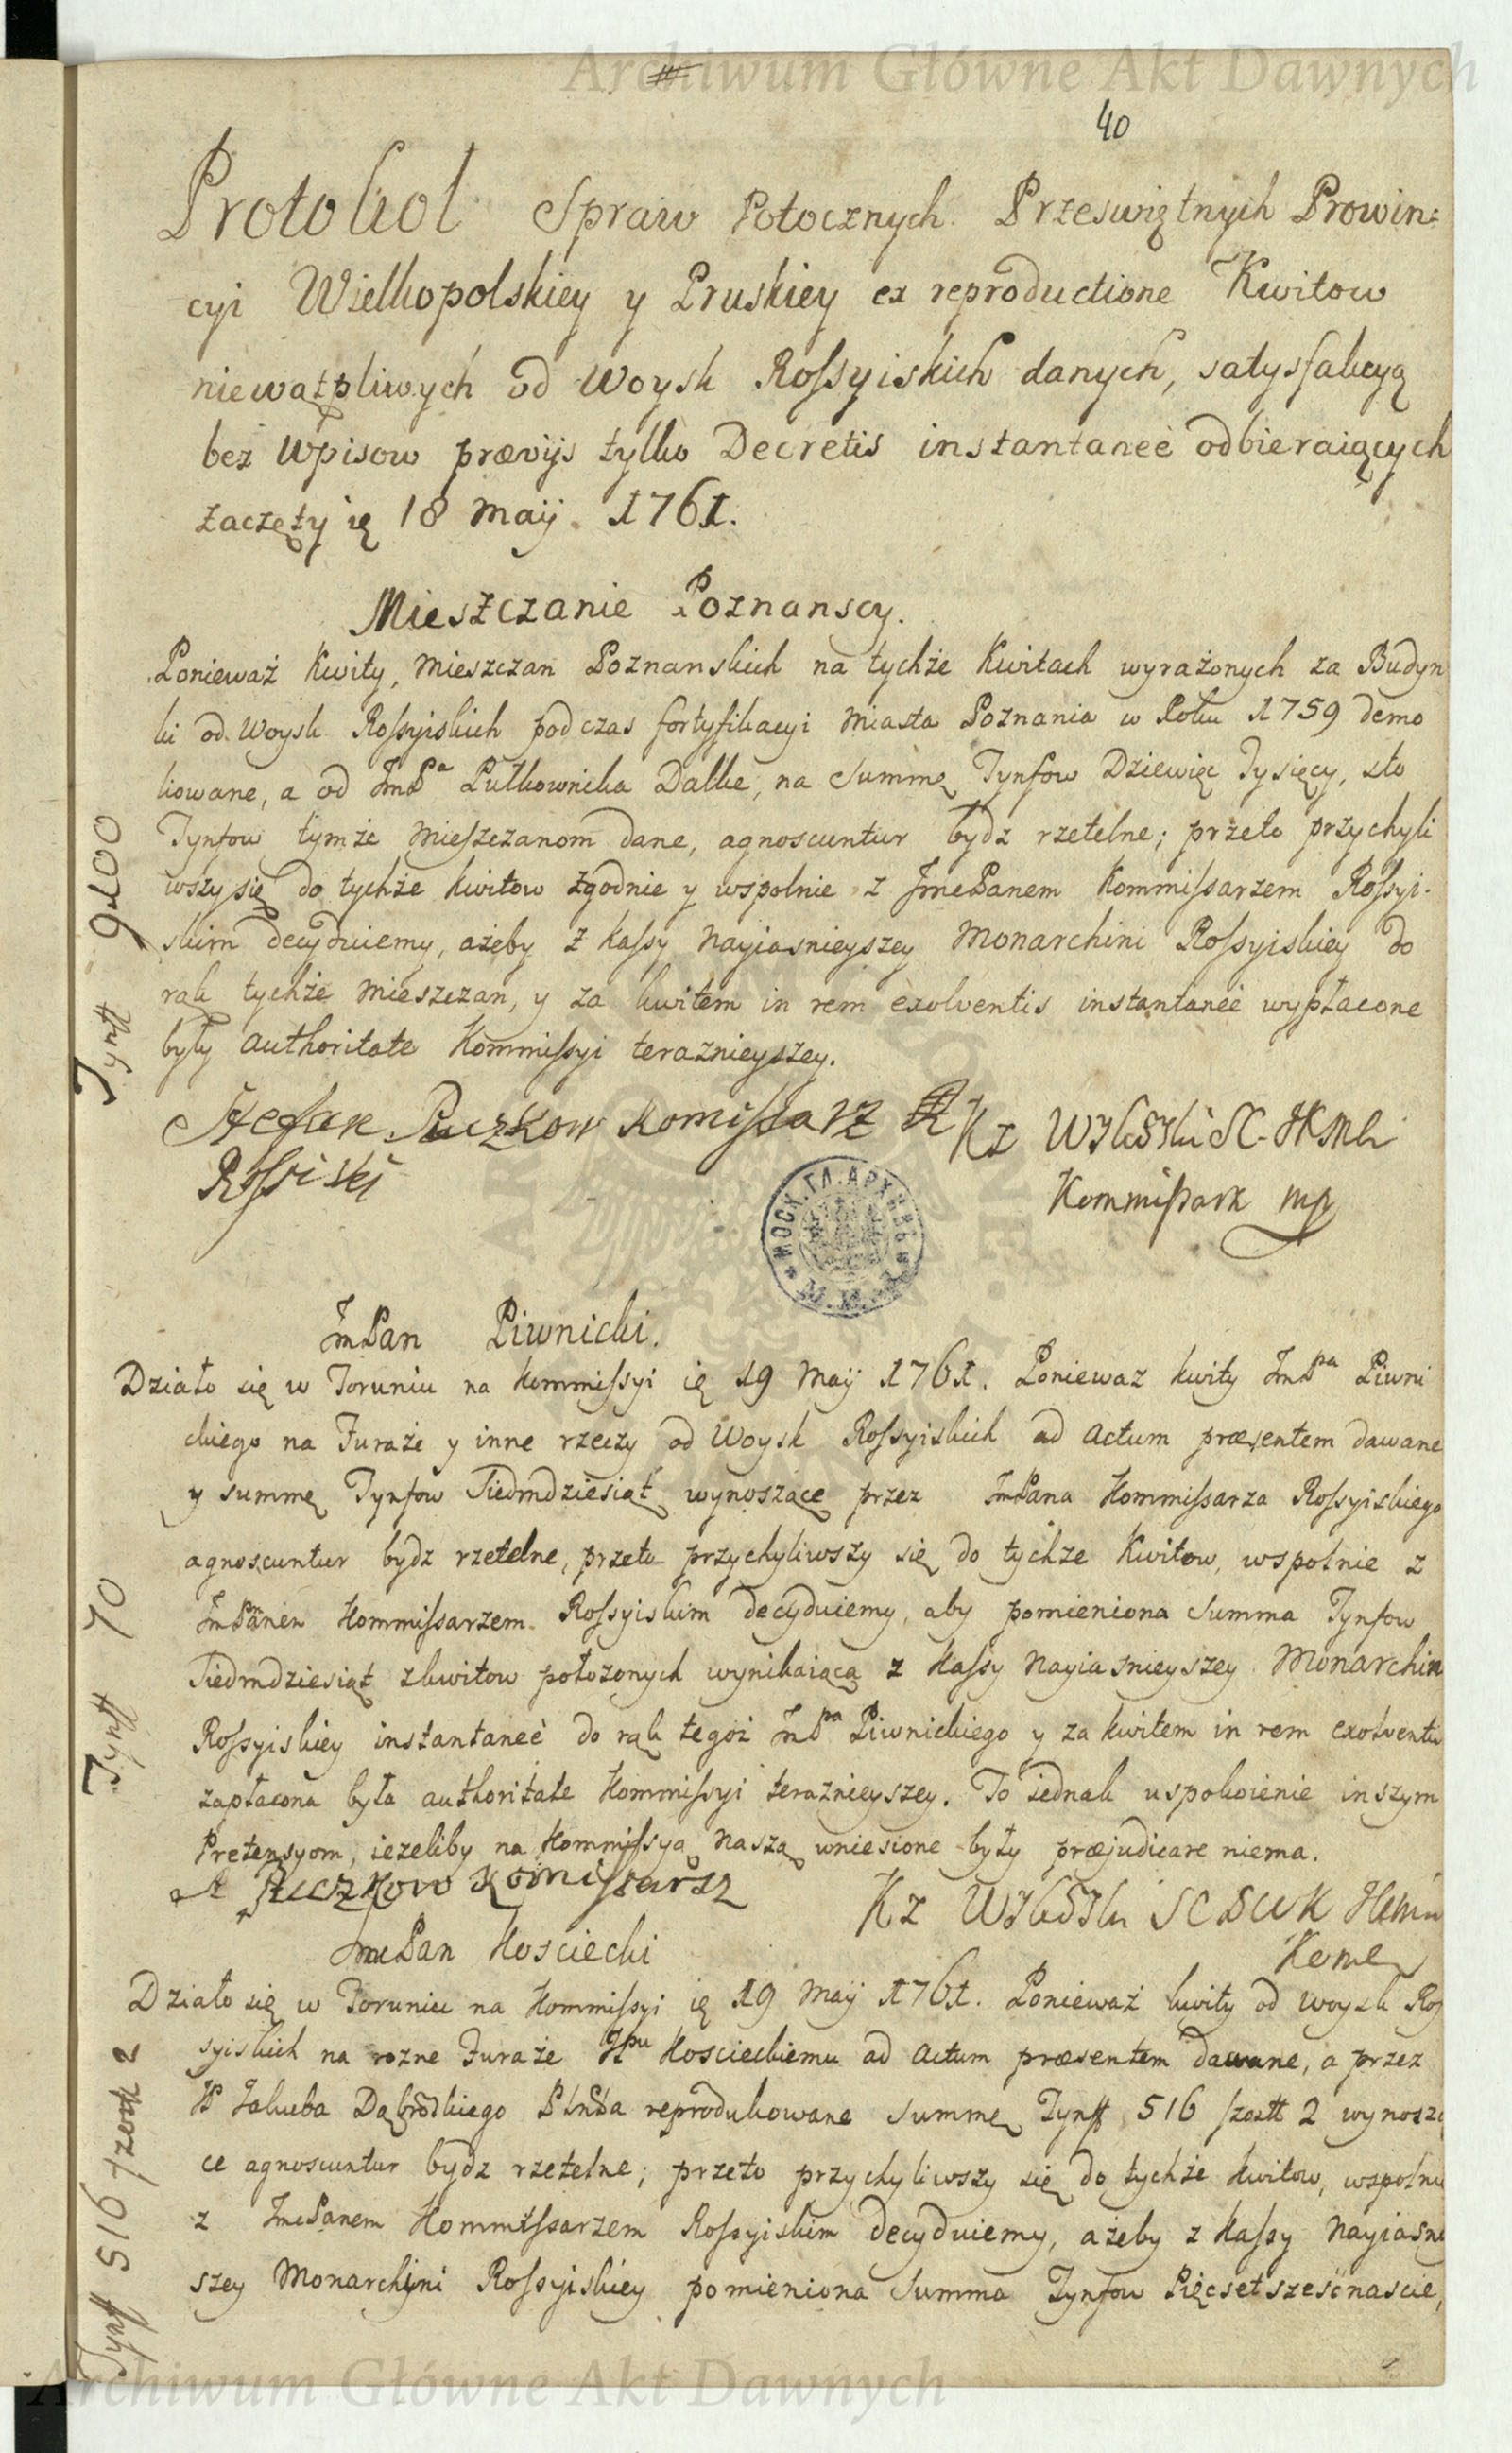 Archiwum Główne Akt Dawnych
40
Protokol Spraw Potocznych Przeswiętnych Prowin:
cyi Wielkopolskiey y Pruskiey ex reproductione Kwitow
niewątpliwych od Woysk Rossyiskich danych, satysfakcyą
bez Wpisow prævijs tylko Decretis instantaneè odbieraiących
zaczęty ię 18 Maij. 1761.
Mieszczanie Poznanscy.
Ponieważ Kwity, Mieszczan Poznanskich na tychże Kwitach wyrażonych za Budyn
ki od Woysk Rossyiskich podczas fortyfikacyi Miasta Poznania w Roku 1759 demo
liowane, a od JmPa Pułkownika Dalke, na Summę Tynfow Dziewięc Tysięcy, sto
Tynfow tymże Mieszczanom dane, agnoscuntur bydz rzetelne; przeto przychyli
wszy się do tychże kwitow zgodnie y wspolnie z JmcPanem Kommissarzem Rossyi-
skim decyduiemy, ażeby z Kassy Nayiasnieyszey Monarchini Rossyiskiey do
rąk tychże Mieszczan, y za kwitem in rem exolventis instantaneè wypłacone
były authoritate Kommissyi teraznieyszey.
Tynff 9100
Stefan Puczkow Komissarz
Rossiski
Kommissarz mp
МОСК. ГЛ. АРХИВЪ
М. И. Д.
JmPan Piwnicki.
Działo się w Toruniu na Kommissyi ię 19 Maij 1761. Poniewaz kwity JmPpa Piwni
ckiego na Furaże y inne rzeczy od Woysk Rossyiskich ad Actum præsentem dawane
y summę Tynfow Siedmdziesiąt wynoszące przez JmPana Kommissarza Rossyiskiego
agnoscuntur bydz rzetelne, przeto przychyliwszy się do tychze Kwitow, wspolnie z
JmPanem Kommissarzem Rossyiskim decyduiemy, aby pomieniona Summa Tynfow
Siedmdziesiąt zkwitow położonych wynikaiąca z Kassy Nayiasnieyszey Monarchin
Rossyiskiey instantaneè do rąk tegoż JmPpa Piwnickiego y za kwitem in rem exolventis
zapłacona była authoritate Kommissyi teraznieyszey. To iednak uspokoienie inszym
Pretensyom, iezeliby na Kommissyą Naszą wniesione były præjudicare niema.
Tynff 70
Puczkow Komissarz
JmcPan Kosciecki
Działo się w Toruniu na Kommissyi ię 19 Maij 1761. Ponieważ kwity od Woysk Ros
syiskich na rozne Furaże JPpu Koscieckiemu ad Actum præsentem dawane, a przez
JP Jakuba Dąbrodkiego reprodukowane summę Tynff 516 szostt 2 wynoszą
ce agnoscuntur bydz rzetelne; przeto przychyliwszy się do tychże kwitow, wspolnie
z JmcPanem Kommissarzem Rossyiskim decyduiemy, ażeby z Kassy Nayiasniey
szey Monarchini Rossyiskiey pomieniona Summa Tynfow Pięcset szesćnascie,
Tynff 516 szostt 2
Archiwum Główne Akt Dawnych